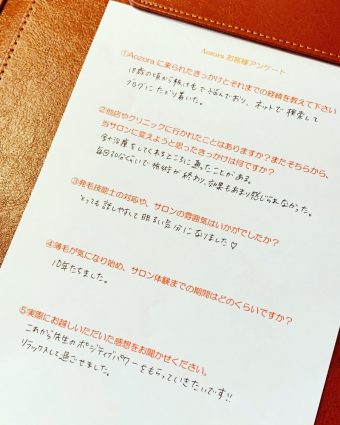 Aozora お客様アンケート
①Aozora に来られたきっかけとそれまでの経緯を教えて下さい
18歳の頃から抜け毛で悩んでおり、ネットで検索して
ブログにたどり着いた。
②他店やクリニックに行かれたことはありますか？またそちらから、
当サロンに変えようと思ったきっかけは何ですか？
治療をしてくれるところに通ったことがある。
毎回30分くらいで施術が終わり、効果もあまり感じられなかった。
③発毛技能士の対応や、サロンの雰囲気はいかがでしたか？
とっても話しやすくて明るい気分になりました♡
④薄毛が気になり始め、サロン体験までの期間はどのくらいですか？
10年たちました。
⑤実際にお越しいただいた感想をお聞かせください。
これから先生のポジティブパワーをもらっていきたいです!!
リラックスして過ごせました。